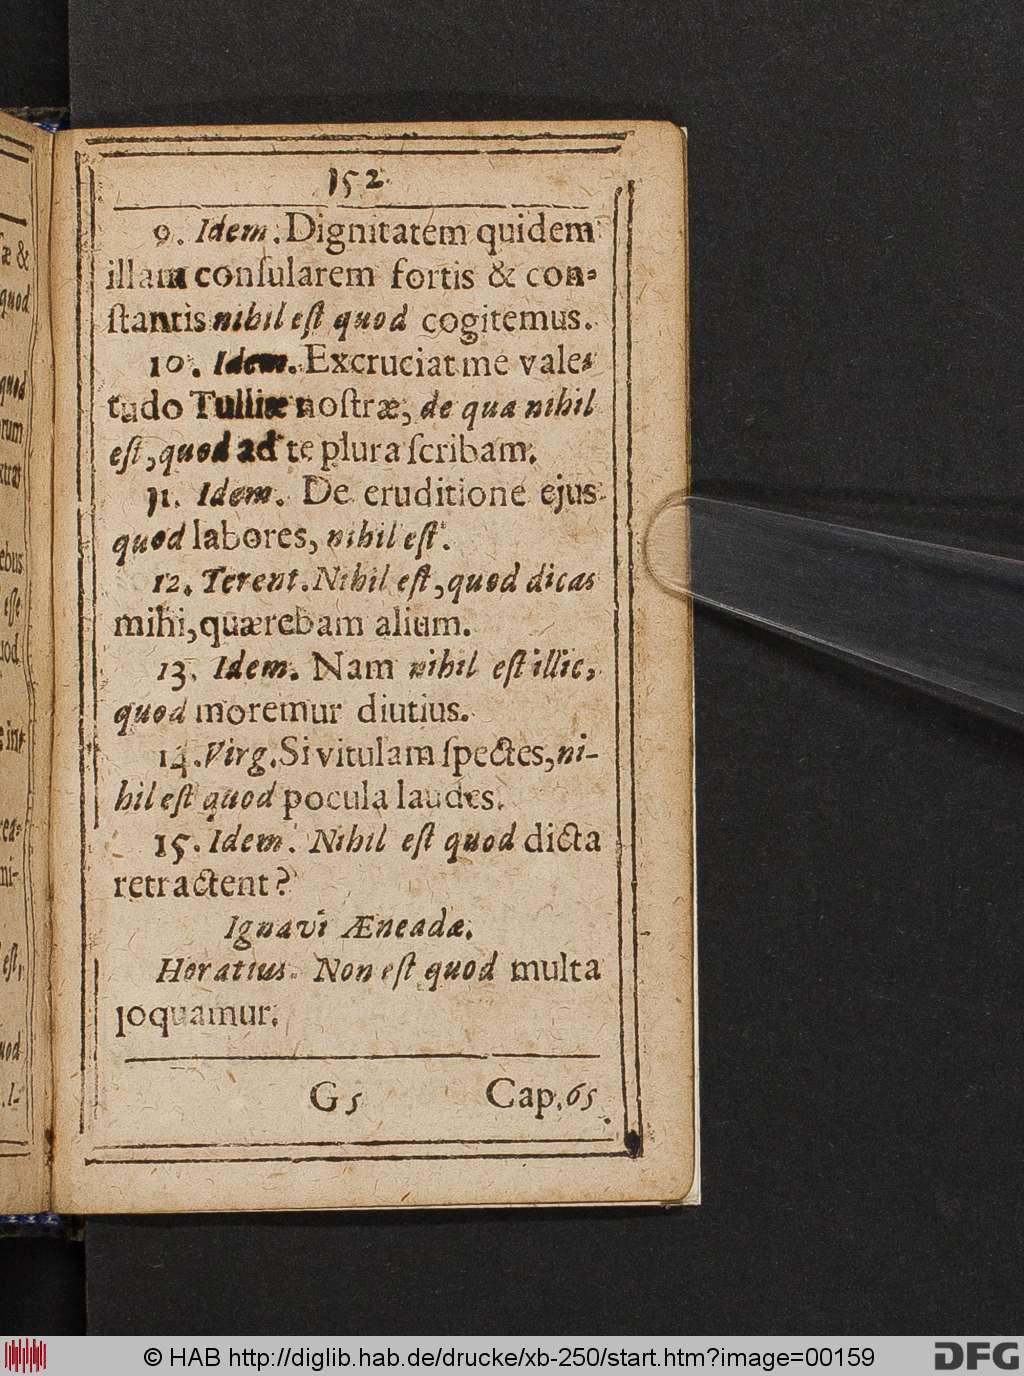 152.
9. Idem. Dignitatem quidem
illam conſularem fortis & con-
ſtantis nihil eſt quod cogitemus.
10. Idem. Excruciat me vale-
tudo Tulliæ noſtræ, de qua nihil
eſt, quod ad te plura ſcribam.
11. Idem. De eruditione ejus
quod labores, nihil eſt.
12. Terent. Nihil eſt, quod dicas
mihi, quærebam alium.
13. Idem. Nam nihil eſt illic,
quod moremur diutius.
14. Virg. Si vitulam ſpectes, ni-
hil eſt quod pocula laudes.
15. Idem. Nihil eſt quod dicta
retractent?
Ignavi Æneadæ.
Horatius. Non eſt quod multa
loquamur.
G 5 Cap. 65
æ &
quod
quod
rum
ebus
eſſe
eſt,
© HAB http://diglib.hab.de/drucke/xb-250/start.htm?image=00159
DFG